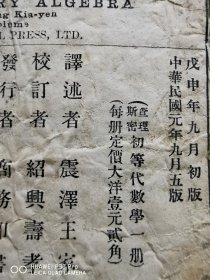 RY ALGEBRA
g Kia-yen
L PRESS, LTD.
戊申年九月初版
中華民國元年九月五版
查理斯密初等代數學一册
(每册定價大洋壹元貳角
譯述者 震澤王
校訂者 紹興壽孝
發行者 商務印書